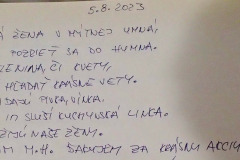 5.8.2023
Á ŽENA V MYTNEJ UMNÁ,
POZBIEŤ SA DO HUMNA.
ZELENINA, ČI KVETY,
HĽADAŤ KRÁSNE VETY.
PIVKA, VÍNKA,
IM SLUŠÍ KUCHYNSKÁ LINKA.
ŽIJÚ NAŠE ŽENY.
M.H. ĎAKUJEM ZA KRÁSNU AKCIU